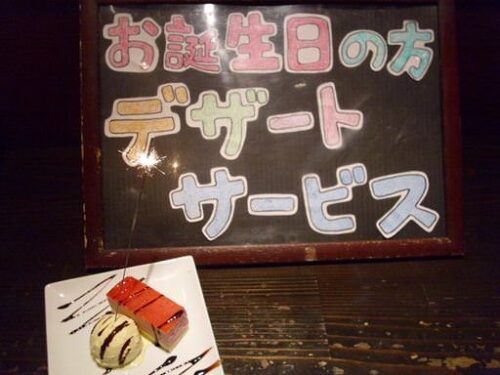 お誕生日の方
デザート
サービス